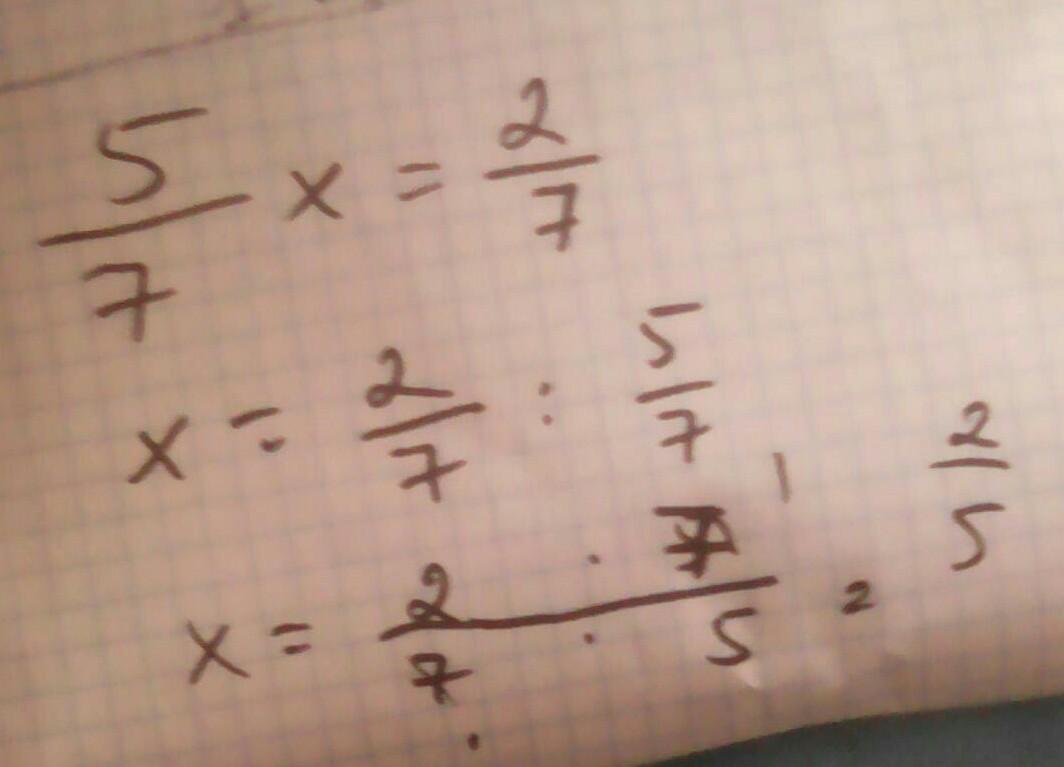 5/7 x = 2/7
x = 2/7 : 5/7
x = 2 · 7 1 / 7 · 5 = 2/5